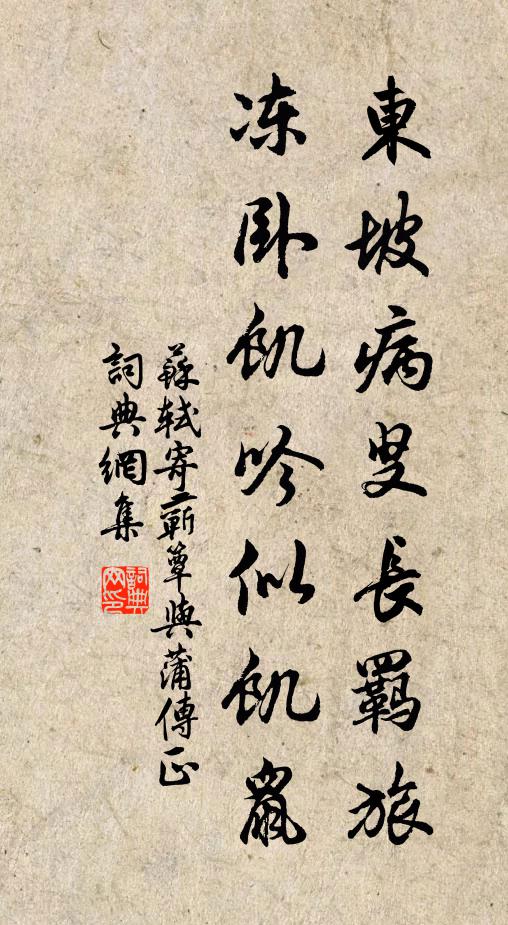 東坡病叟長羈旅
冻卧飢吟似飢鼠
蘇軾寄蘄簟與蒲傳正
詞典網集
詞典網印